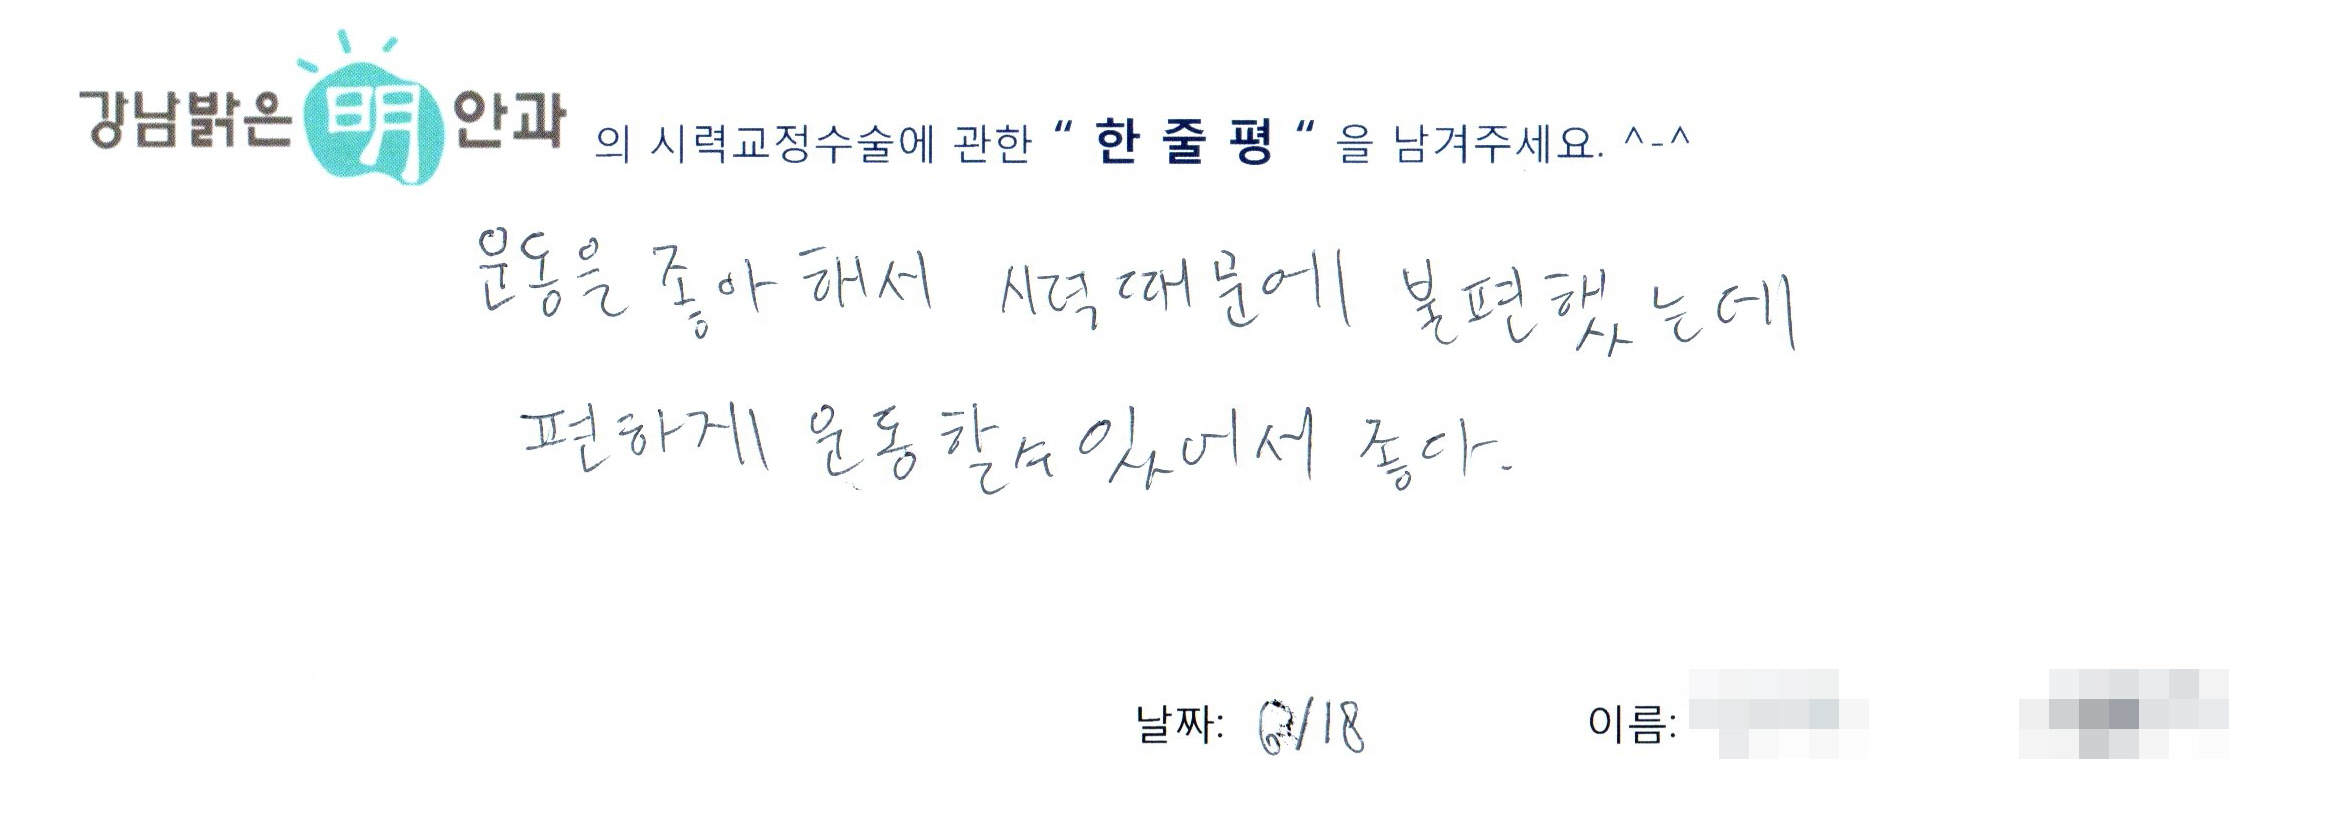 강남밝은 明 안과 의 시력교정수술에 관한 “ 한 줄 평 “ 을 남겨주세요. ^-^
운동을 좋아해서 시력때문에 불편했는데
편하게 운동할수 있어서 좋다.
날짜: /18 이름: